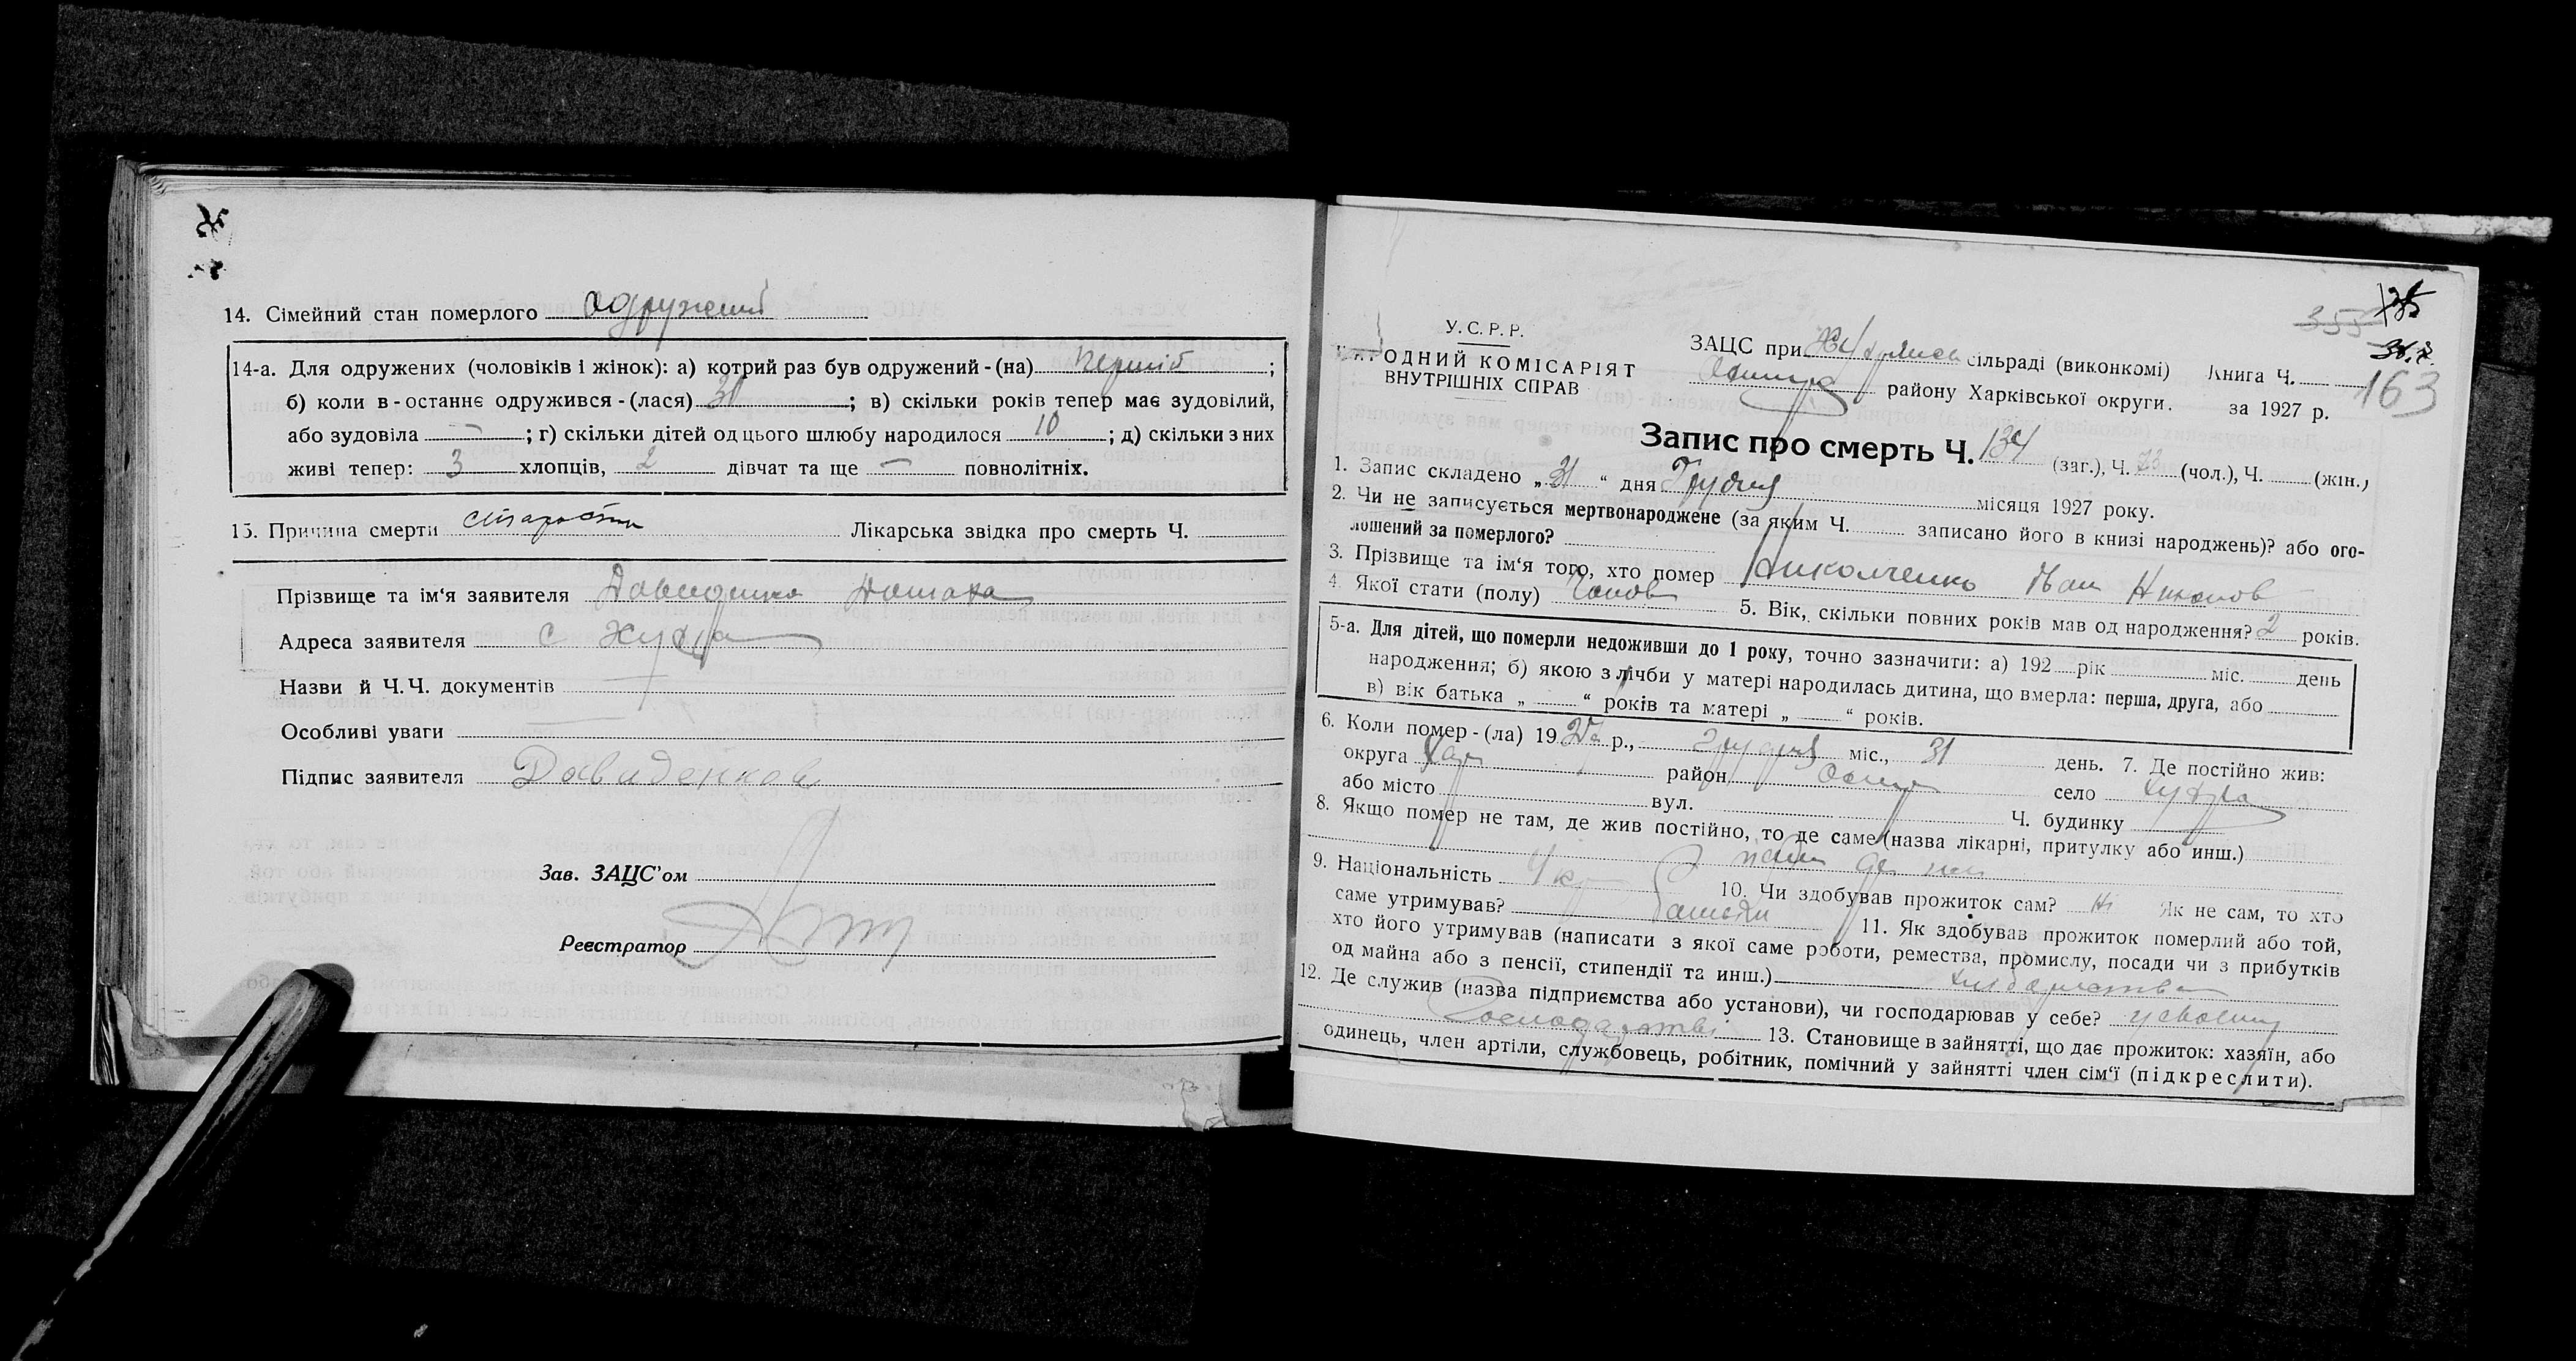 14. Сімейний стан померлого одружений
14-а. Для одружених (чоловіків і жінок): а) котрий раз був одружений-(на) перший ;
б) коли в-останнє одружився-(лася) 30 ; в) скільки років тепер має зудовілий,
або зудовіла — ; г) скільки дітей од цього шлюбу народилося 10 ; д) скільки з них
живі тепер: 3 хлопців, 2 дівчат та ще — повнолітніх.
15. Причина смерти старости Лікарська звідка про смерть Ч.
Прізвище та ім'я заявителя
Адреса заявителя с
Назви й Ч.Ч. документів —
Особливі уваги —
Підпис заявителя
Зав. ЗАЦС'ом
Реєстратор
355
163
У.С.Р.Р.
ОДНИЙ КОМІСАРІЯТ
ВНУТРІШНІХ СПРАВ
ЗАЦС при сільраді (виконкомі) Книга Ч.
району Харківської округи. за 1927 р.
Запис про смерть Ч. 134 (заг.), Ч. 73 (чол.), Ч. (жін.)
1. Запис складено „31“ дня Грудня місяця 1927 року.
2. Чи не записується мертвонароджене (за яким Ч. записано його в книзі народжень)? або ого-
лошений за померлого?
3. Прізвище та ім'я того, хто помер Николченко Иван
4. Якої стати (полу) Чолов 5. Вік, скільки повних років мав од народження? 2 років.
5-а. Для дітей, що померли недоживши до 1 року, точно зазначити: а) 192 рік міс. день
народження; б) якою з лічби у матері народилась дитина, що вмерла: перша, друга, або
в) вік батька „ “ років та матері „ “ років.
6. Коли помер-(ла) 1927 р., грудня міс., 31 день. 7. Де постійно жив:
округа Хар район село
або місто вул. Ч. будинку
8. Якщо помер не там, де жив постійно, то де саме (назва лікарні, притулку або инш.)
9. Національність Укр 10. Чи здобував прожиток сам? Ні Як не сам, то хто
саме утримував? батьки 11. Як здобував прожиток померлий або той,
хто його утримував (написати з якої саме роботи, ремества, промислу, посади чи з прибутків
од майна або з пенсії, стипендії та инш.) хліборобства
12. Де служив (назва підприємства або установи), чи господарював у себе? у своєму
господарстві 13. Становище в зайнятті, що дає прожиток: хазяїн, або
одинець, член артіли, службовець, робітник, помічний у зайнятті член сім'ї (підкреслити).